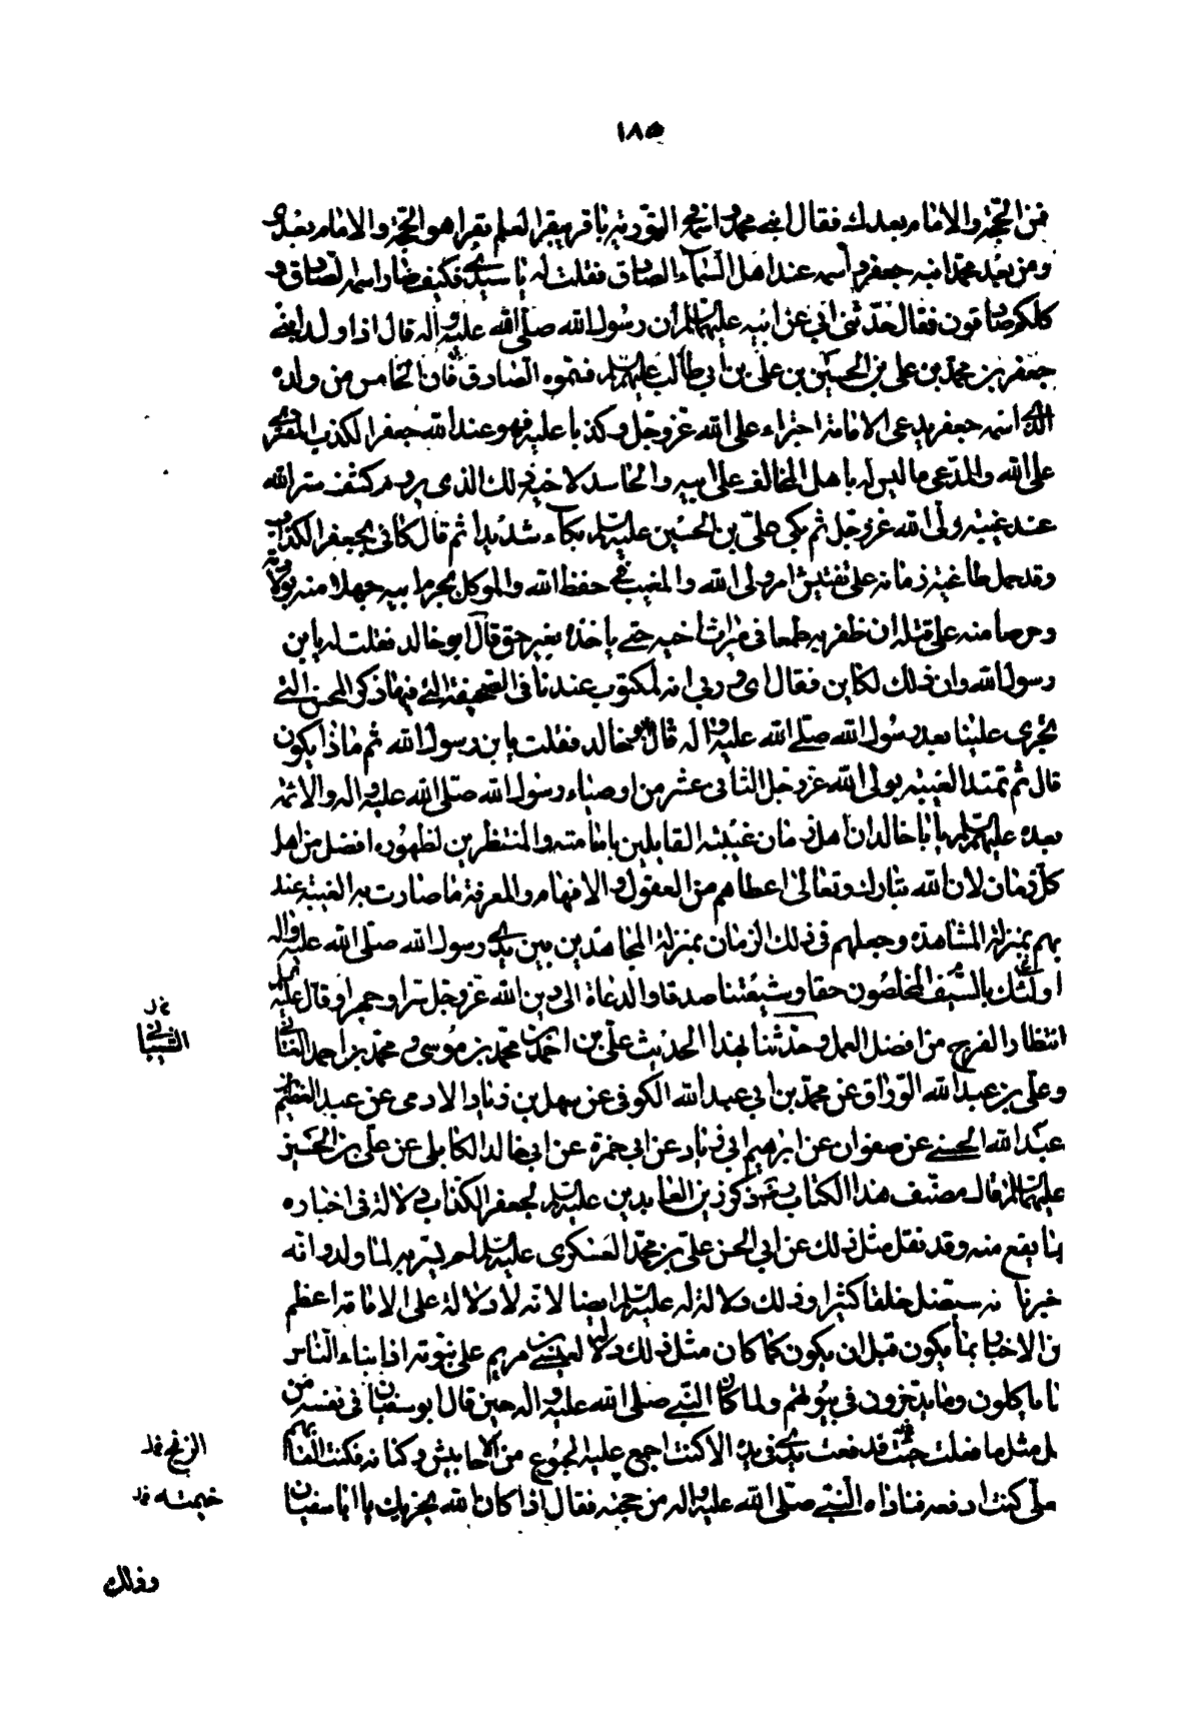 ١٨٥
فمن الحجة والامام بعدك فقال ابنى محمد واسمه فى التورية باقر يبقر العلم بقرا هو الحجة والامام بعدى
ومن بعد محمد ابنه جعفر واسمه عند اهل السماء الصادق فقلت له يا سيدى فكيف صار اسمه الصادق و
كلكم صادقون فقال حدثنى ابى عن ابيه عليهما السلم ان رسول الله صلى الله عليه واله قال اذا ولد ابنى
جعفر بن محمد بن على بن الحسين بن على بن ابى طالب عليهم السلم فسموه الصادق فان الخامس من ولده
الذى اسمه جعفر يدعى الامامة اجتراء على الله عز وجل وكذبا عليه فهو عند الله جعفر الكذاب المفترى
على الله والمدعى ما ليس له باهل المخالف على ابيه والحاسد لاخيه ذلك الذى يروم كشف ستر الله
عند غيبة ولى الله عز وجل ثم بكى على بن الحسين عليه السلم بكاء شديدا ثم قال كانى بجعفر الكذاب
وقد حمل طاغية زمانه على تفتيش امر ولى الله والمغيب فى حفظ الله والموكل بحرم ابيه جهلا منه بولادته
وحرصا منه على قتله ان ظفر به طمعا فى ميراث اخيه حتى ياخذه بغير حق قال ابو خالد فقلت له يا بن
رسول الله وان ذلك لكاين فقال اى وربى انه لمكتوب عندنا فى الصحيفة التى فيها ذكر المحن التى
تجرى علينا بعد رسول الله صلى الله عليه واله قال ابو خالد فقلت يا بن رسول الله ثم ماذا يكون
قال ثم تمتد الغيبة بولى الله عز وجل الثانى عشر من اوصياء رسول الله صلى الله عليه واله والائمة
بعده عليهم السلم يا با خالد ان اهل زمان غيبته القايلين بامامته والمنتظرين لظهوره افضل من اهل
كل زمان لان الله تبارك وتعالى اعطاهم من العقول والافهام والمعرفة ما صارت به الغيبة عند
بهم بمنزلة المشاهدة وجعلهم فى ذلك الزمان بمنزلة المجاهدين بين يدى رسول الله صلى الله عليه واله
اولئك بالسيف المخلصون حقا وشيعتنا صدقا والدعاة الى دين الله عز وجل سرا وجهرا وقال عليه السلم
انتظار الفرج من افضل العمل وحدثنا بهذا الحديث على بن احمد بن محمد بن موسى و محمد بن احمد
الشيبانى
وعلى بن عبد الله الوراق عن محمد بن ابى عبد الله الكوفى عن سهل بن زياد الادمى عن عبد العظيم بن
عبد الله الحسنى عن صفوان عن ابرهيم ابى زياد عن ابى حمزة عن ابى خالد الكابلى عن على بن الحسين
عليهما السلم قال مصنف هذا الكتاب ذكر زين العابدين عليه السلم لجعفر الكذاب دلالة فى اخباره
بما يقع منه وقد نقل مثل ذلك عن ابى الحسن على بن محمد العسكرى عليه السلم لم يسر به لما ولد وانه
خبرنا نه سيضل خلقا كثيرا وذلك دلالة له عليه السلم ايضا لانه لا دلالة على الامامة اعظم
ن الاخبار بما يكون قبل ان يكون كما كان مثل ذلك دلالة لعيسى بن مريم على نبوته اذا نباء الناس
ما ياكلون وما يدخرون فى بيوتهم ولما كان النبى صلى الله عليه واله حين قال ابو سفيان فى نفسه من
مل مثل ما فعلت جئت فدفعت يدى فى يده الا كنت اجمع عليه الجموع من الاحابيش وكنانة فكنت القاه
الزنج خد
على كنت ادفعه فناداه النبى صلى الله عليه واله من خيمته فقال اذا كان الله يخزيك يا ابا سفيان
خيمته خد
وذلك